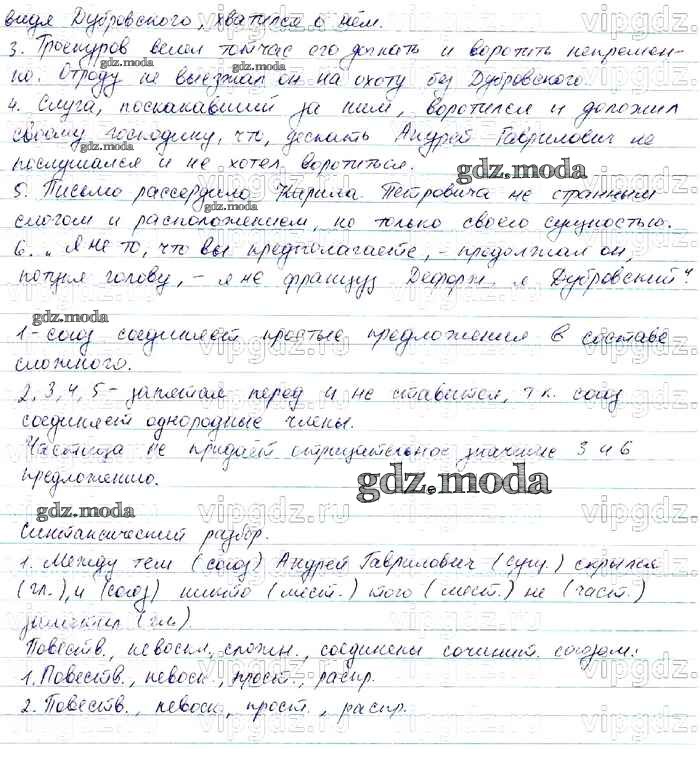 видя Дубровского, хватился о нём.
3. Троекуров велел тотчас его догнать и воротить непремен-
но. Отроду не выезжал он на охоту без Дубровского.
4. Слуга, поскакавший за ним, воротился и доложил
своему господину, что, дескать Андрей Гаврилович не
послушался и не хотел воротиться.
5. Письмо рассердило Кирила Петровича не странным
слогом и расположением, но только своею сущностью.
6. „Я не то, что вы предполагаете, - продолжал он,
потупя голову, - я не француз Дефорж, я Дубровский"
1- союз соединяет простые предложения в составе
сложного.
2,3,4,5 - запятая перед и не ставится, т.к. союз
соединяет однородные члены.
Частица не придаёт отрицательное значение 3 и 6
предложению.
Синтаксический разбор.
1. Между тем (союз) Андрей Гаврилович (сущ.) скрылся
(гл.), и (союз) никто (мест.) того (мест.) не (част.)
заметил (гл.)
Повеств., невоскл., сложн., соединены сочинит. союзом:
1. Повеств., невоск., прост., распр.
2. Повеств., невоск., прост., распр.
gdz.moda
gdz.moda
gdz.moda
gdz.moda
gdz.moda
gdz.moda
gdz.moda
vipgdz.ru